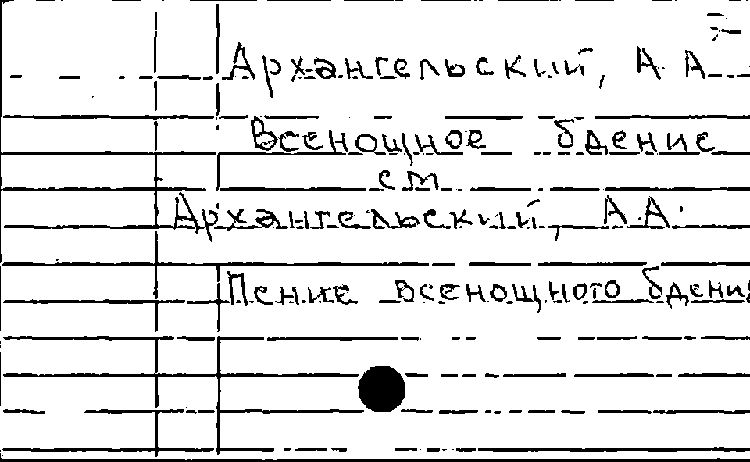 Архангельский, А. А.
Всенощное бдение
см
Архангельский, А. А.
Пение всенощного бдения